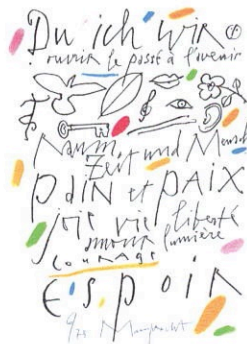 Du ich wir
ouvrir le passé à l'avenir
Raum
Zeit und Mensch
PAIN et PAIX
joie vie liberté
amour lumière
COURAGE
Espoir